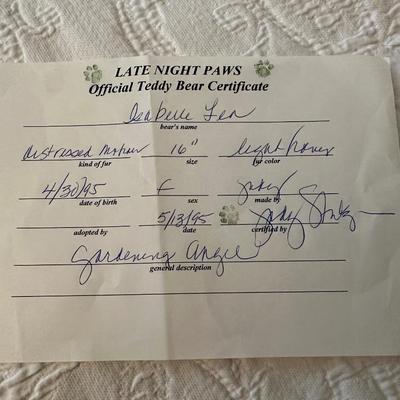 LATE NIGHT PAWS
Official Teddy Bear Certificate
Isabelle
bear's name
distressed mohair 16" light honey
kind of fur size fur color
4/30/95 f Judy
date of birth sex made by
5/13/95 Judy
adopted by date certified by
Gardening Angel
general description